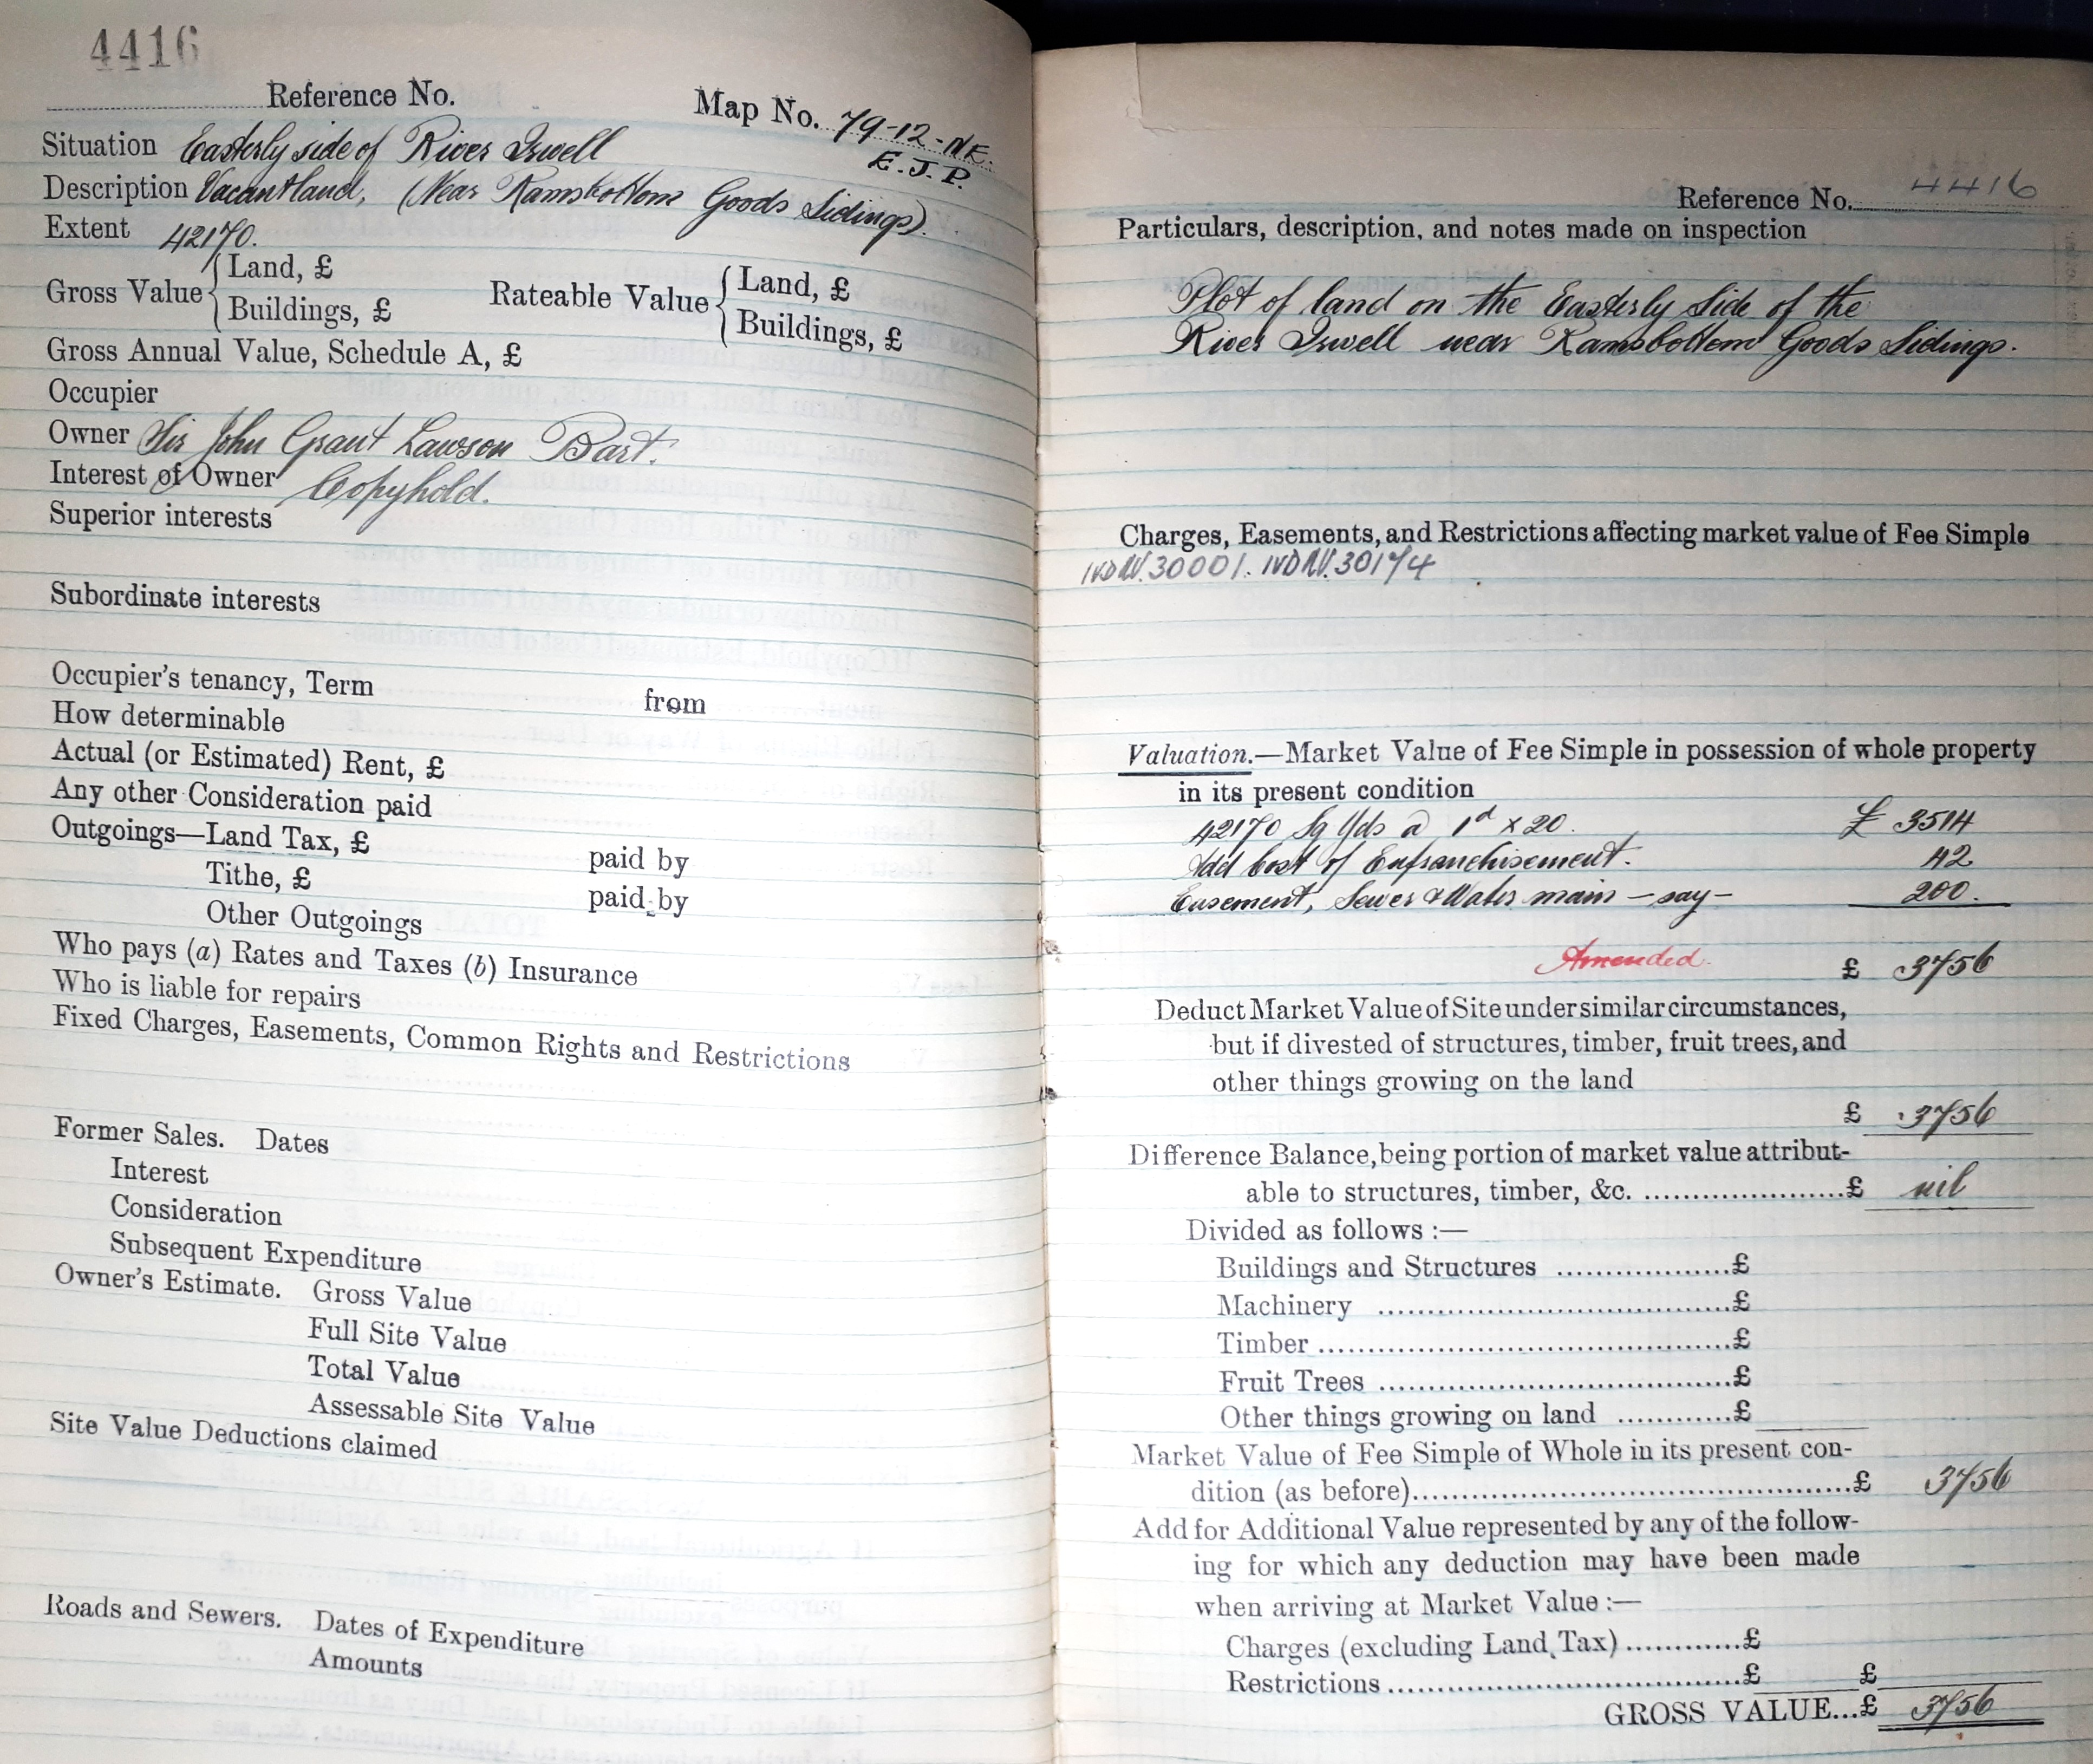 4416
Reference No.
Map No. 79-12-NE.
E.J.P.
Situation Easterly side of River Irwell
Description Vacant land, (Near Ramsbottom Goods Sidings).
Extent 42170.
Gross Value { Land, £
Buildings, £
Rateable Value { Land, £
Buildings, £
Gross Annual Value, Schedule A, £
Occupier
Owner Sir John Grant Lawson Bart.
Interest of Owner Copyhold.
Superior interests
Subordinate interests
Occupier's tenancy, Term from
How determinable
Actual (or Estimated) Rent, £
Any other Consideration paid
Outgoings—Land Tax, £ paid by
Tithe, £ paid by
Other Outgoings
Who pays (a) Rates and Taxes (b) Insurance
Who is liable for repairs
Fixed Charges, Easements, Common Rights and Restrictions
Former Sales. Dates
Interest
Consideration
Subsequent Expenditure
Owner's Estimate. Gross Value
Full Site Value
Total Value
Assessable Site Value
Site Value Deductions claimed
Roads and Sewers. Dates of Expenditure
Amounts
Reference No. 4416
Particulars, description, and notes made on inspection
Plot of land on the Easterly Side of the
River Irwell near Ramsbottom Goods Sidings.
Charges, Easements, and Restrictions affecting market value of Fee Simple
30001. 30174
Valuation.—Market Value of Fee Simple in possession of whole property
in its present condition
42170 Sq Yds @ 1d × 20. £ 3514
Add Cost of Enfranchisement. 42
Easement, Sewer & Water main – say – 200.
Amended. £ 3756
Deduct Market Value of Site under similar circumstances,
but if divested of structures, timber, fruit trees, and
other things growing on the land
£ 3756
Difference Balance, being portion of market value attribut-
able to structures, timber, &c. ......................£ nil
Divided as follows :—
Buildings and Structures ...................£
Machinery ...................................£
Timber .........................................£
Fruit Trees ...................................£
Other things growing on land ............£
Market Value of Fee Simple of Whole in its present con-
dition (as before)...........................................£ 3756
Add for Additional Value represented by any of the follow-
ing for which any deduction may have been made
when arriving at Market Value :—
Charges (excluding Land Tax) ............£
Restrictions ...................................£ £
GROSS VALUE...£ 3756